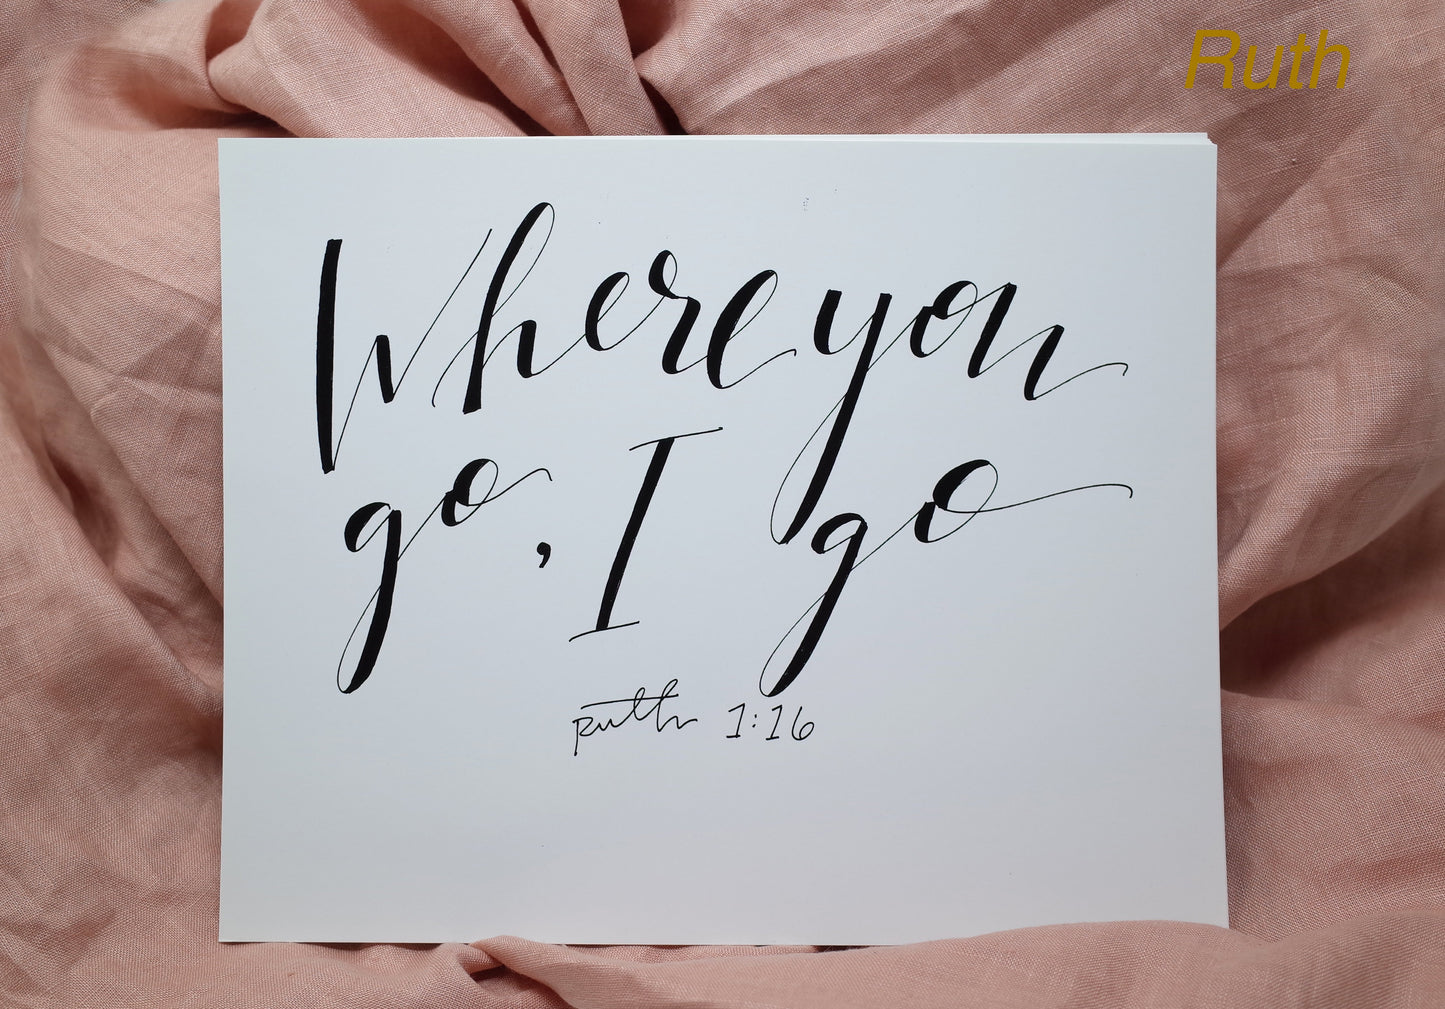 Ruth
Where you
go, I go
Ruth 1:16